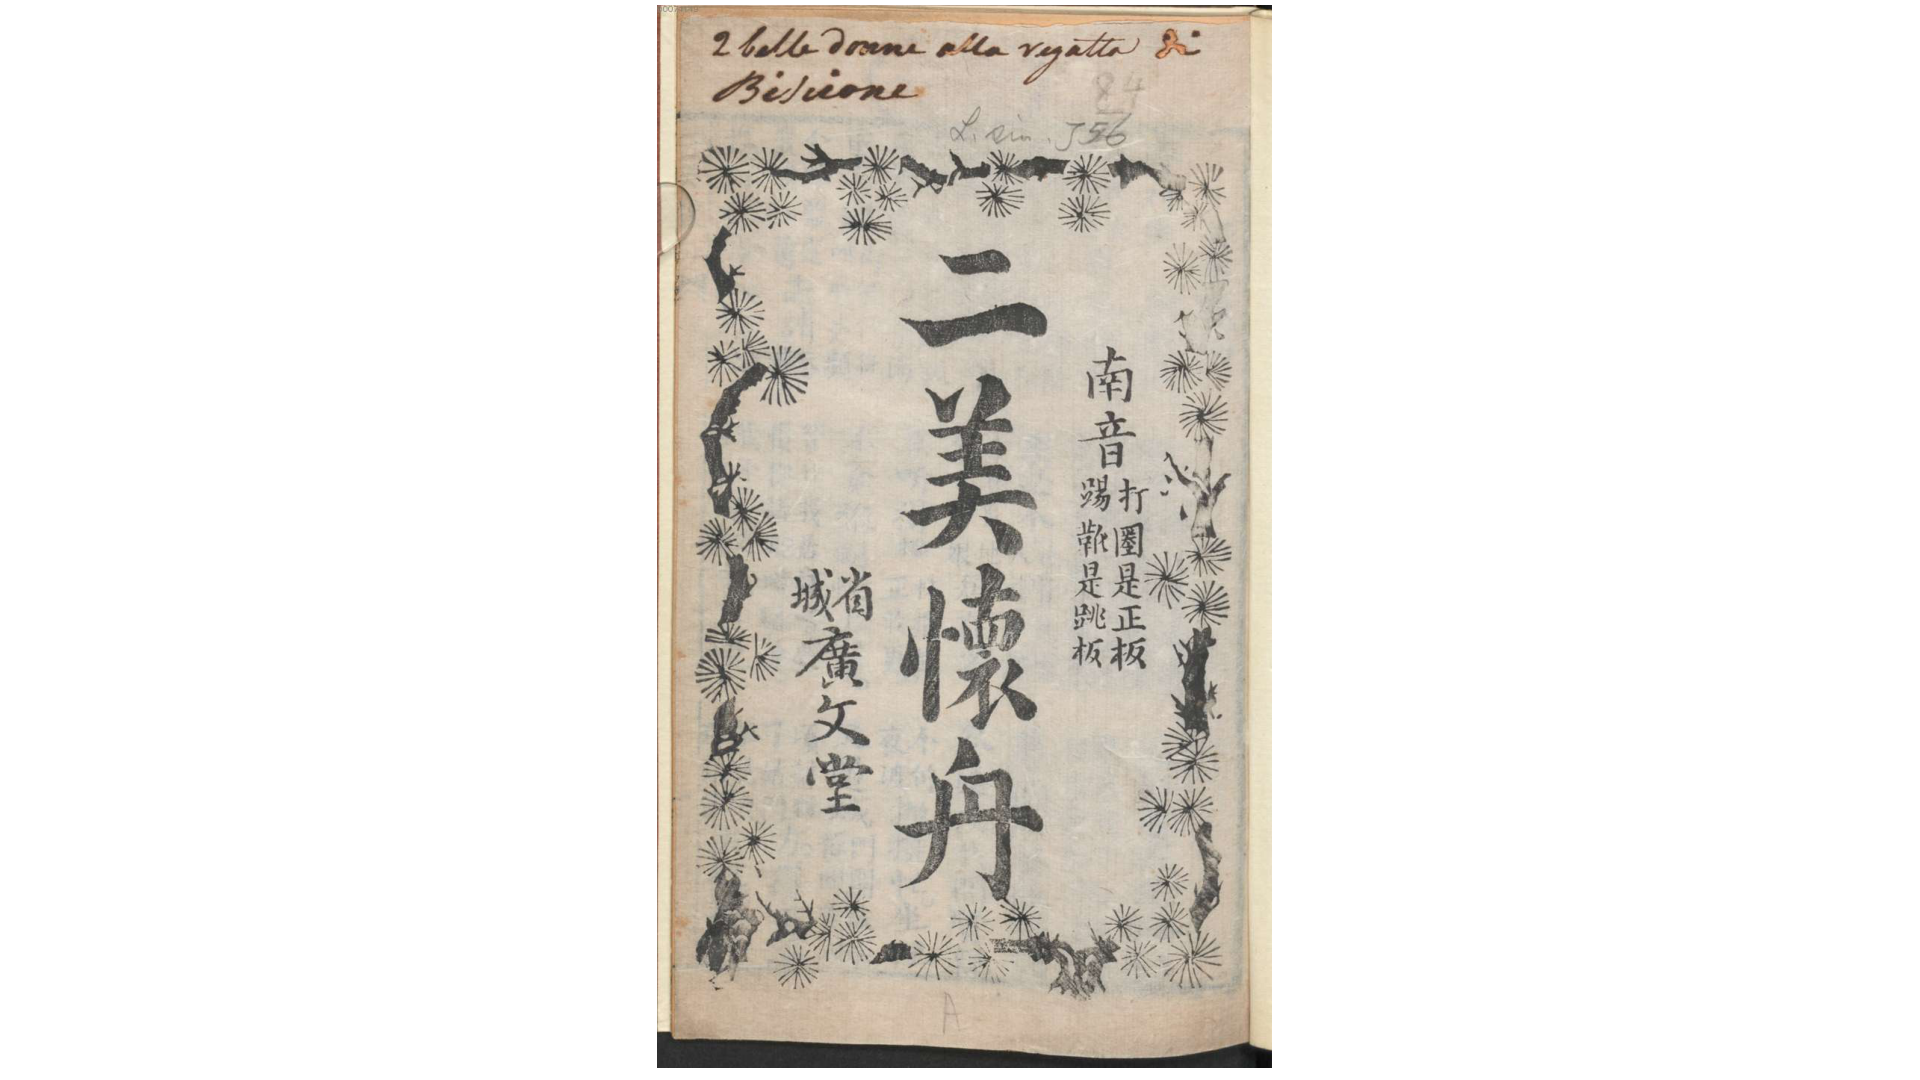 2 belle donne alla regatta di
Biscione
84
L. sin. J 56
南音
打圈是正板
踢𩌏是跳板
二美懷舟
省城
廣文堂
A